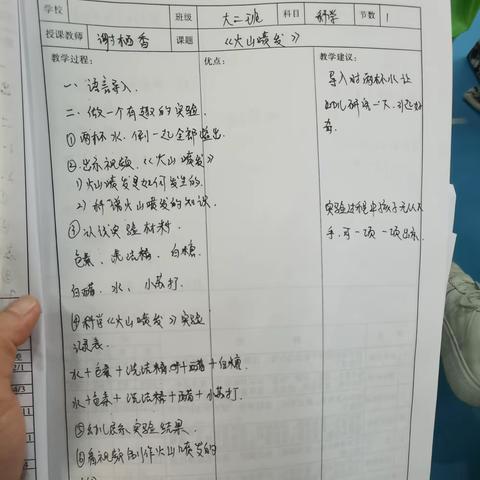 学校 班级 大二班 科目 科学 节数 1
授课教师 谢栖香 课题 《火山喷发》
教学过程: 优点: 教学建议:
一、语言导入.
导入时两杯水让
二、做一个有趣的实验.
幼儿研究一下,引起好
奇.
①两杯水,倒一起全部溢出.
②出示视频,《火山喷发》
1)火山喷发是如何发生的.
2)科普火山喷发的知识.
③认识实验材料.
实验过程中孩子无从入
手,可一项一项出示.
色素、洗洁精、白糖.
白醋、水、小苏打.
④科学《火山喷发》实验
记录表.
水+色素+洗洁精+白醋+白糖.
水+色素+洗洁精+白醋+小苏打.
⑤幼儿展示实验结果.
⑥看视频制作火山喷发的